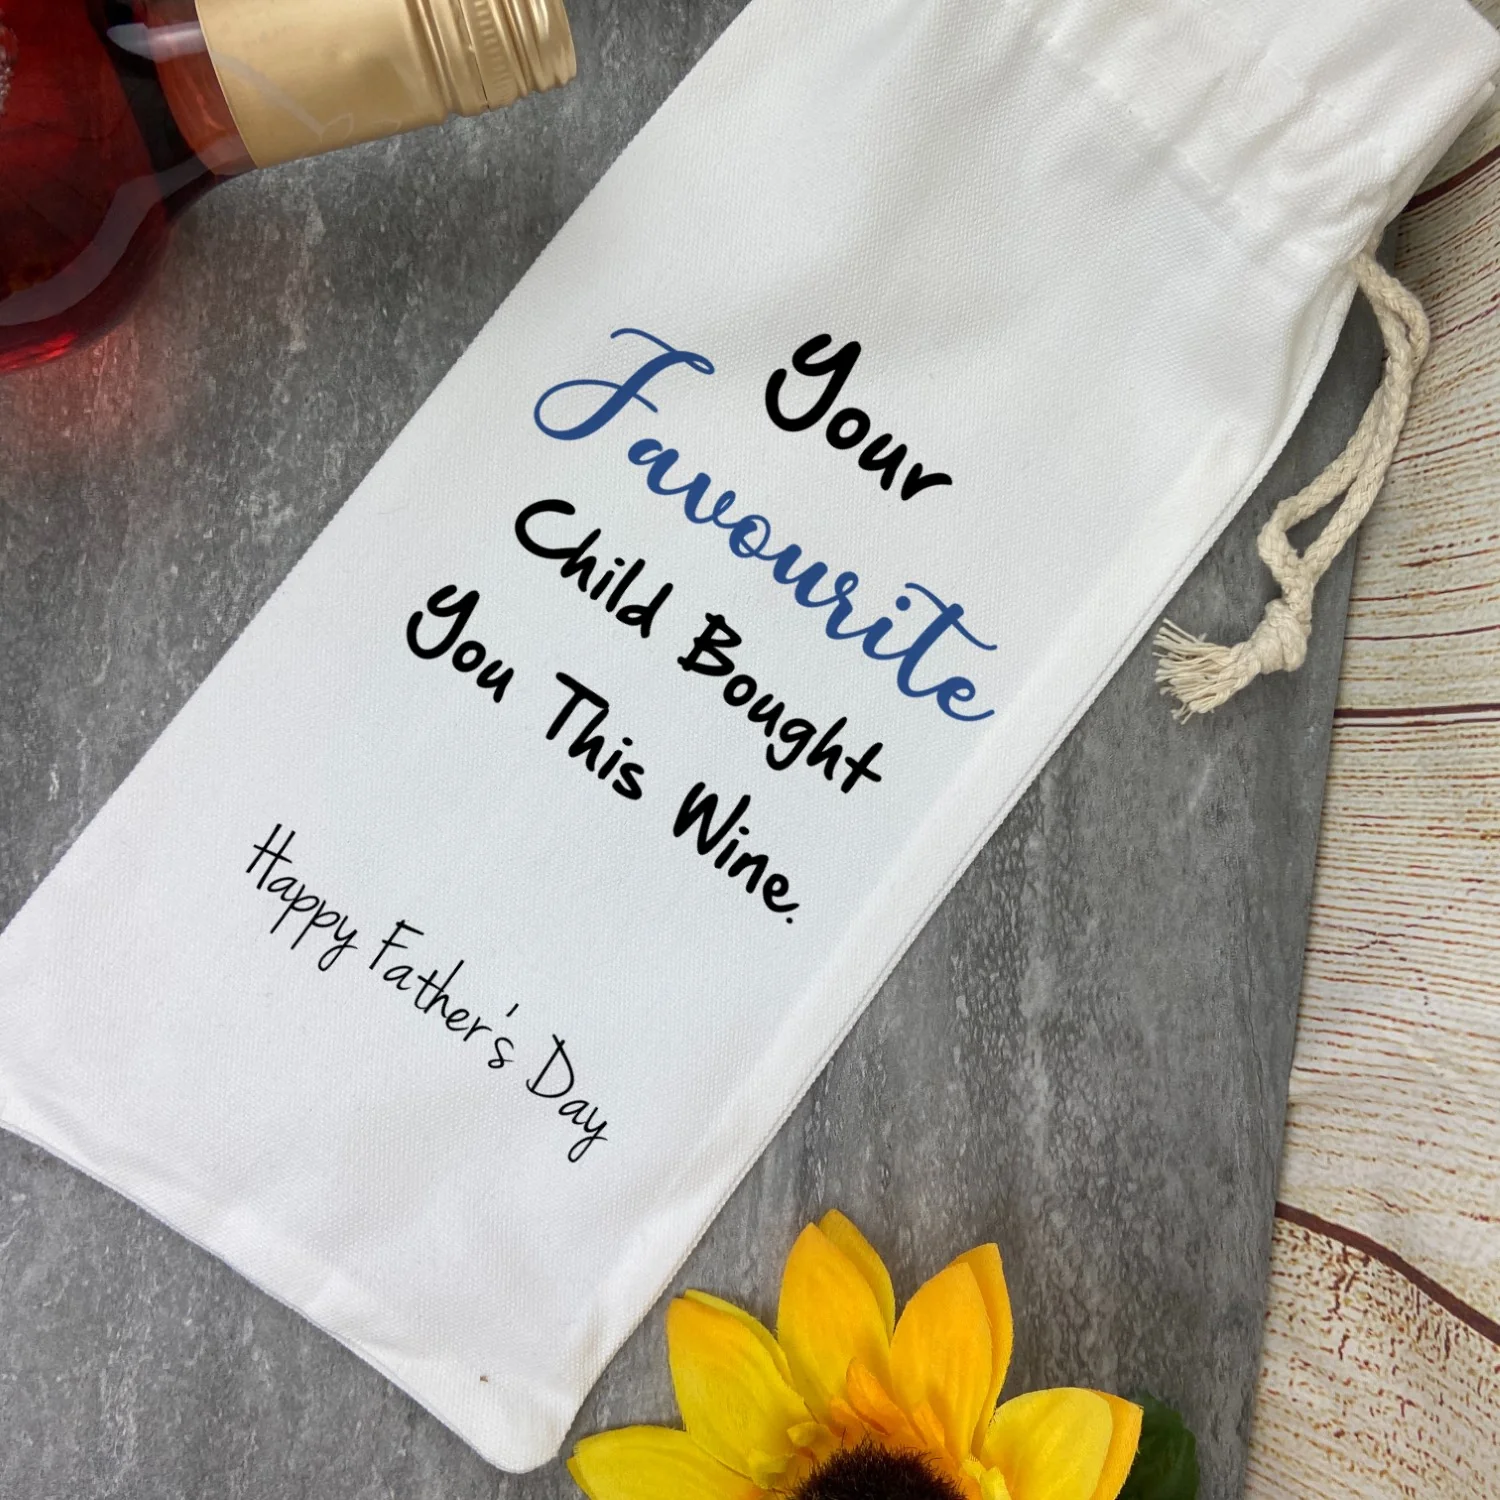 Your
Favourite
Child Bought
You This Wine.
Happy Father's Day